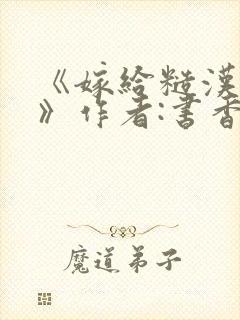 《嫁给糙漢
》作者:書香
魔道弟子